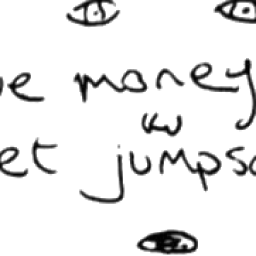 ve money
et jumpsc